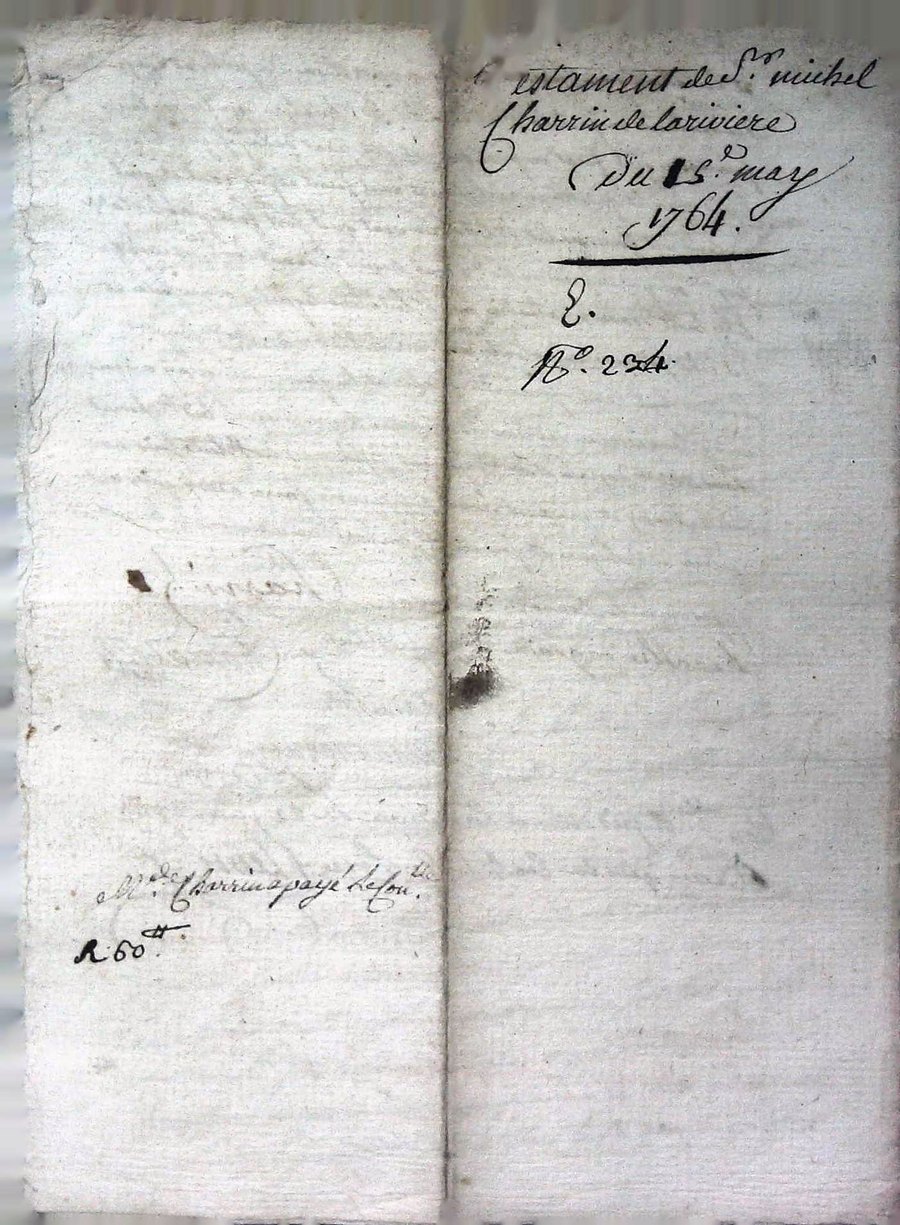 Testament de Sr. michel
Charrin de lariviere
Du 15e. mars
1764.
E.
No. 234.
Md.e Charrin a payé Le Con.lle
R 60tt.